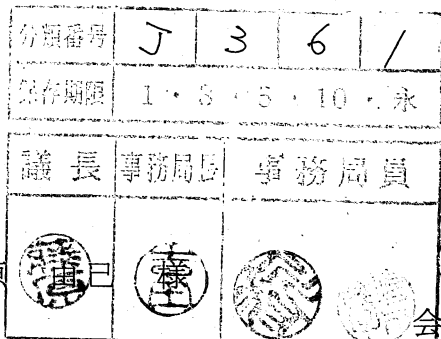 分類番号 J 3 6 1
保存期限 1・3・5・10・永
議長 事務局長 事務局員
由己 様 会